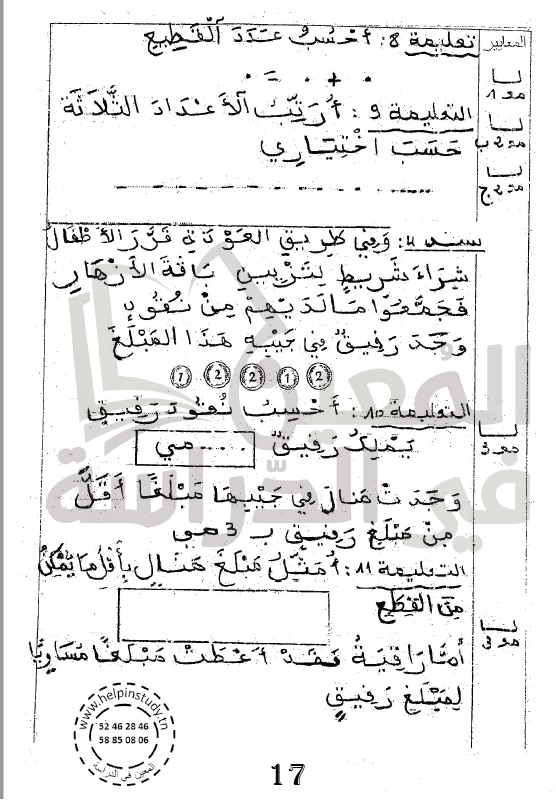 المعايير
تعليمة 8: أَحْسُبُ عَدَدَ الْقَطِيعِ
. + . = .
مع 1
التعليمة 9: أُرَتِّبُ الأَعْدَادَ الثَّلَاثَةَ
مع 2 ب
حَسَبَ اخْتِيَارِي
مع 2 ج
سند 4: وَفِي طَرِيقِ العَوْدَةِ قَرَّرَ الأَطْفَالُ
شِرَاءَ شَرِيطٍ لِتَزْيِينِ بَاقَةِ الأَزْهَارِ
فَجَمَّعُوا مَا لَدَيْهِمْ مِنْ نُقُودٍ
وَجَدَ رَفِيقٌ فِي جَيْبِهِ هَذَا المَبْلَغَ
2 1 2 2 1
التعليمة 10: أَحْسِبُ نُقُودَ رَفِيقٍ
يَمْلِكُ رَفِيقٌ ..... مي
مع 3
وَجَدَتْ مَنَالُ فِي جَيْبِهَا مَبْلَغًا أَقَلَّ
مِنْ مَبْلَغِ رَفِيقٍ بـ 3 مي
التعليمة 11: أُمَثِّلُ مَبْلَغَ مَنَالٍ بِأَقَلِّ مَا يُمْكِنُ
مِنَ القِطَعِ
مع 3
أَمَّا رَاقِيَةُ فَقَدْ أَعْطَتْ مَبْلَغًا مُسَاوِيًا
لِمَبْلَغِ رَفِيقٍ
www.helpinstudy.tn
52 46 28 46
58 85 08 06
المعين في الدراسة
17
المعين
في الدراسة